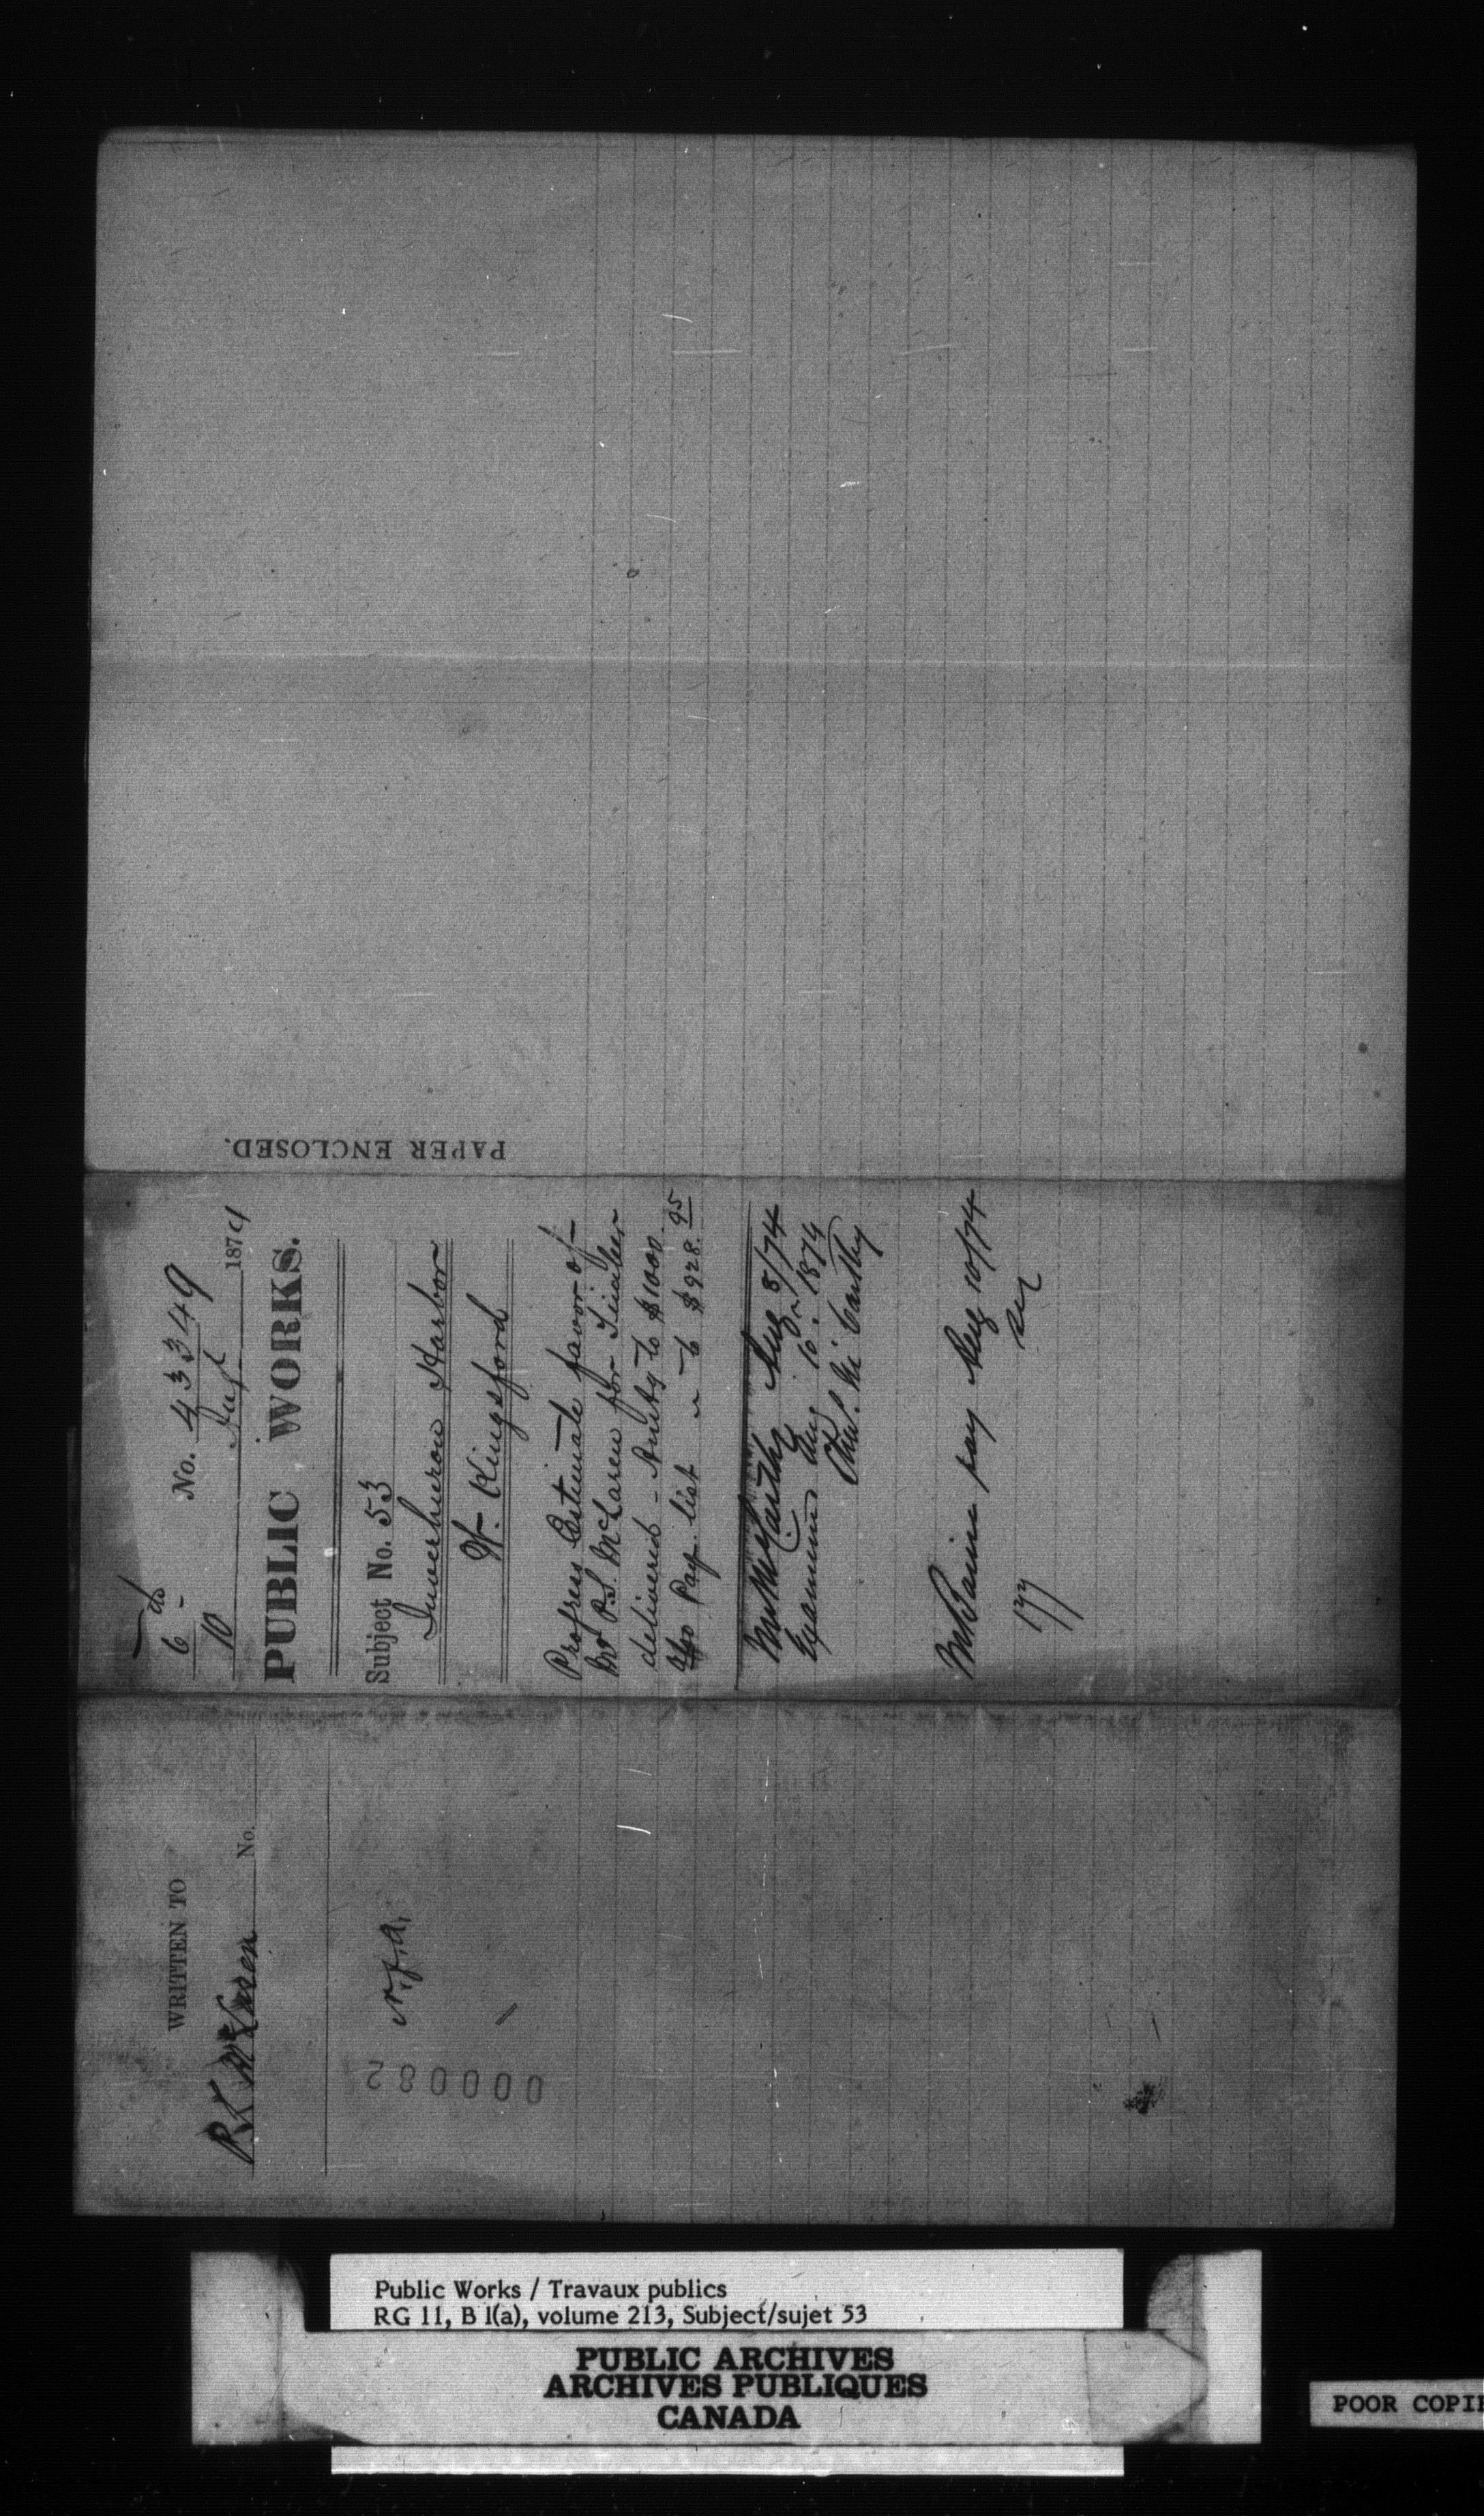 PAPER ENCLOSED.
6
10
No. 43349
Augt 1874
PUBLIC WORKS.
Subject No. 53
Inverhuron Harbor
W. Kingsford
Progress Estimate favor of
Mr R.S. McLaren for Timber
delivered - Amtg to $1000.
Also Pay list " to $928.95
Mr McCarthy Aug 8/74
Examined Aug 10. 1874
Chas. McCarthy
Mr Baine pay Aug 10/74
177
WRITTEN TO
R S McLaren No.
n.f.a.
000082
Public Works / Travaux publics
RG 11, B 1(a), volume 213, Subject/sujet 53
PUBLIC ARCHIVES
ARCHIVES PUBLIQUES
CANADA
POOR COPIE